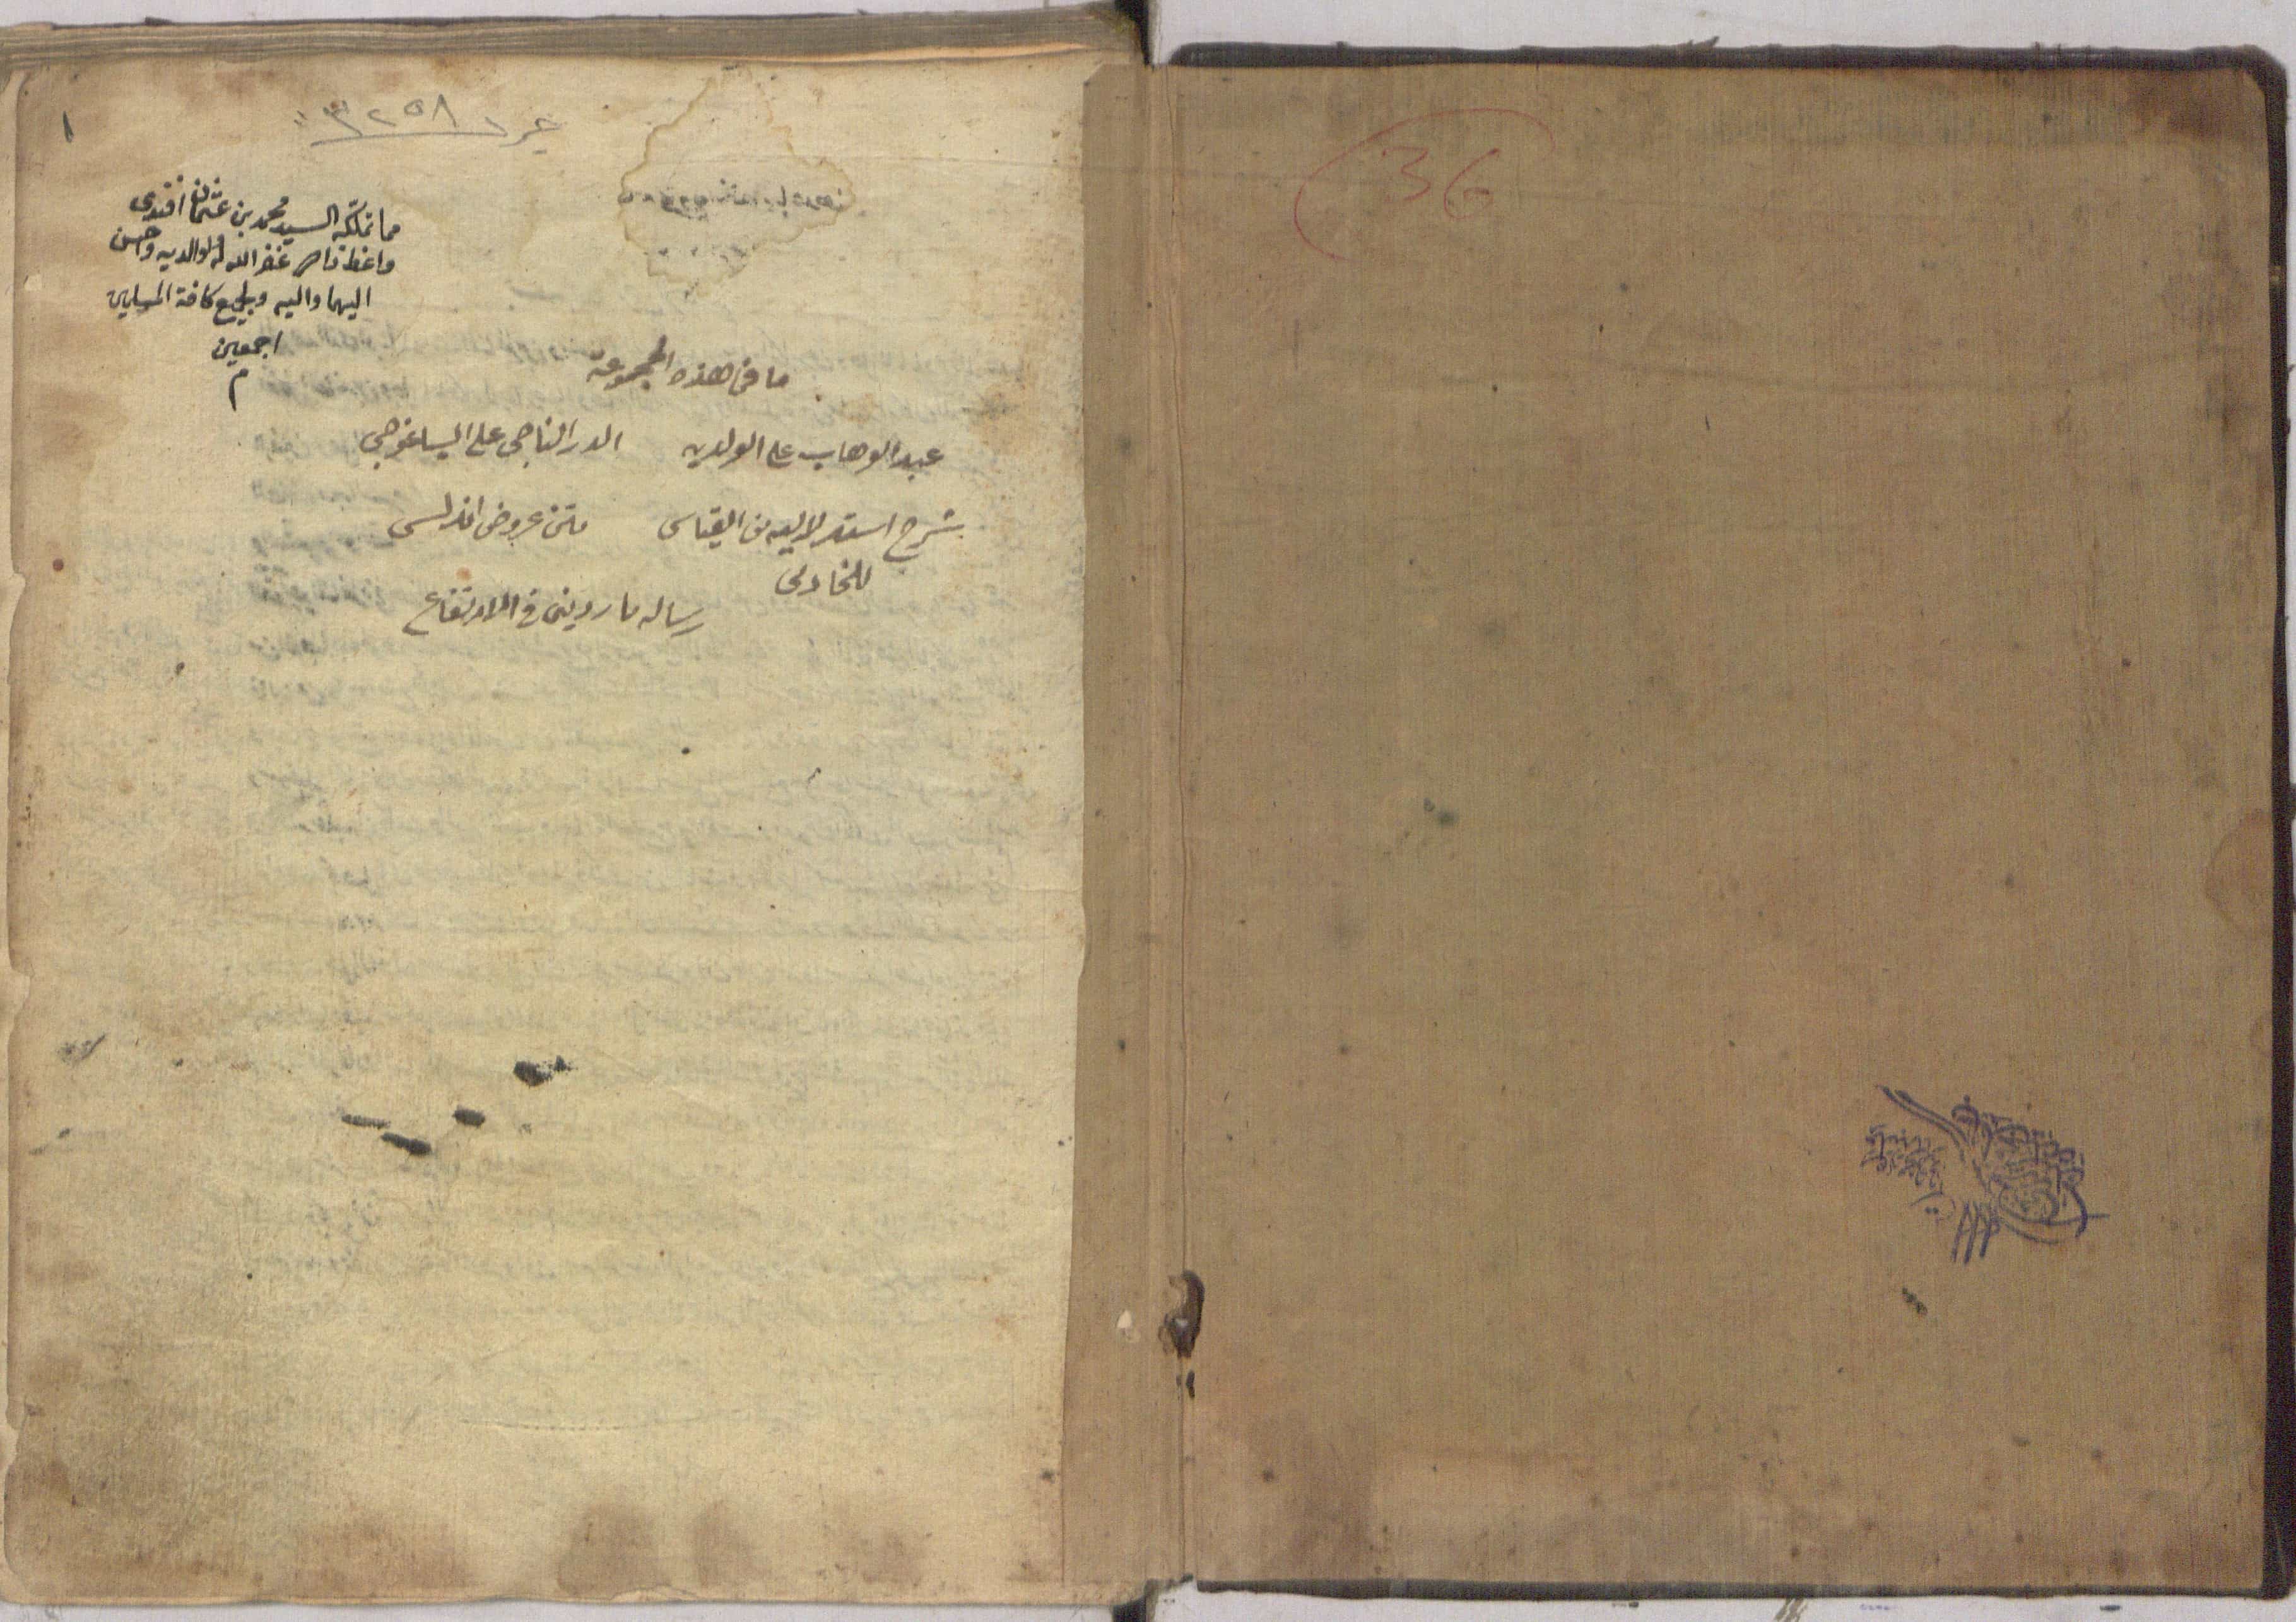 36
٣٢٥٨
١
مما تملكه السيد محمد بن عثمان افندى
واعظ غفر الله له ولوالديه واحسن
اليهما واليه ولجميع كافة المسلمين
اجمعين
م
ما فى هذه المجموعة
عبد الوهاب على الولديه الدر الناجى على ايساغوجى
شرح استدلاليه من القياسى متن عروض اندلسى
للخادمى
رساله ماردينى فى الارتفاع